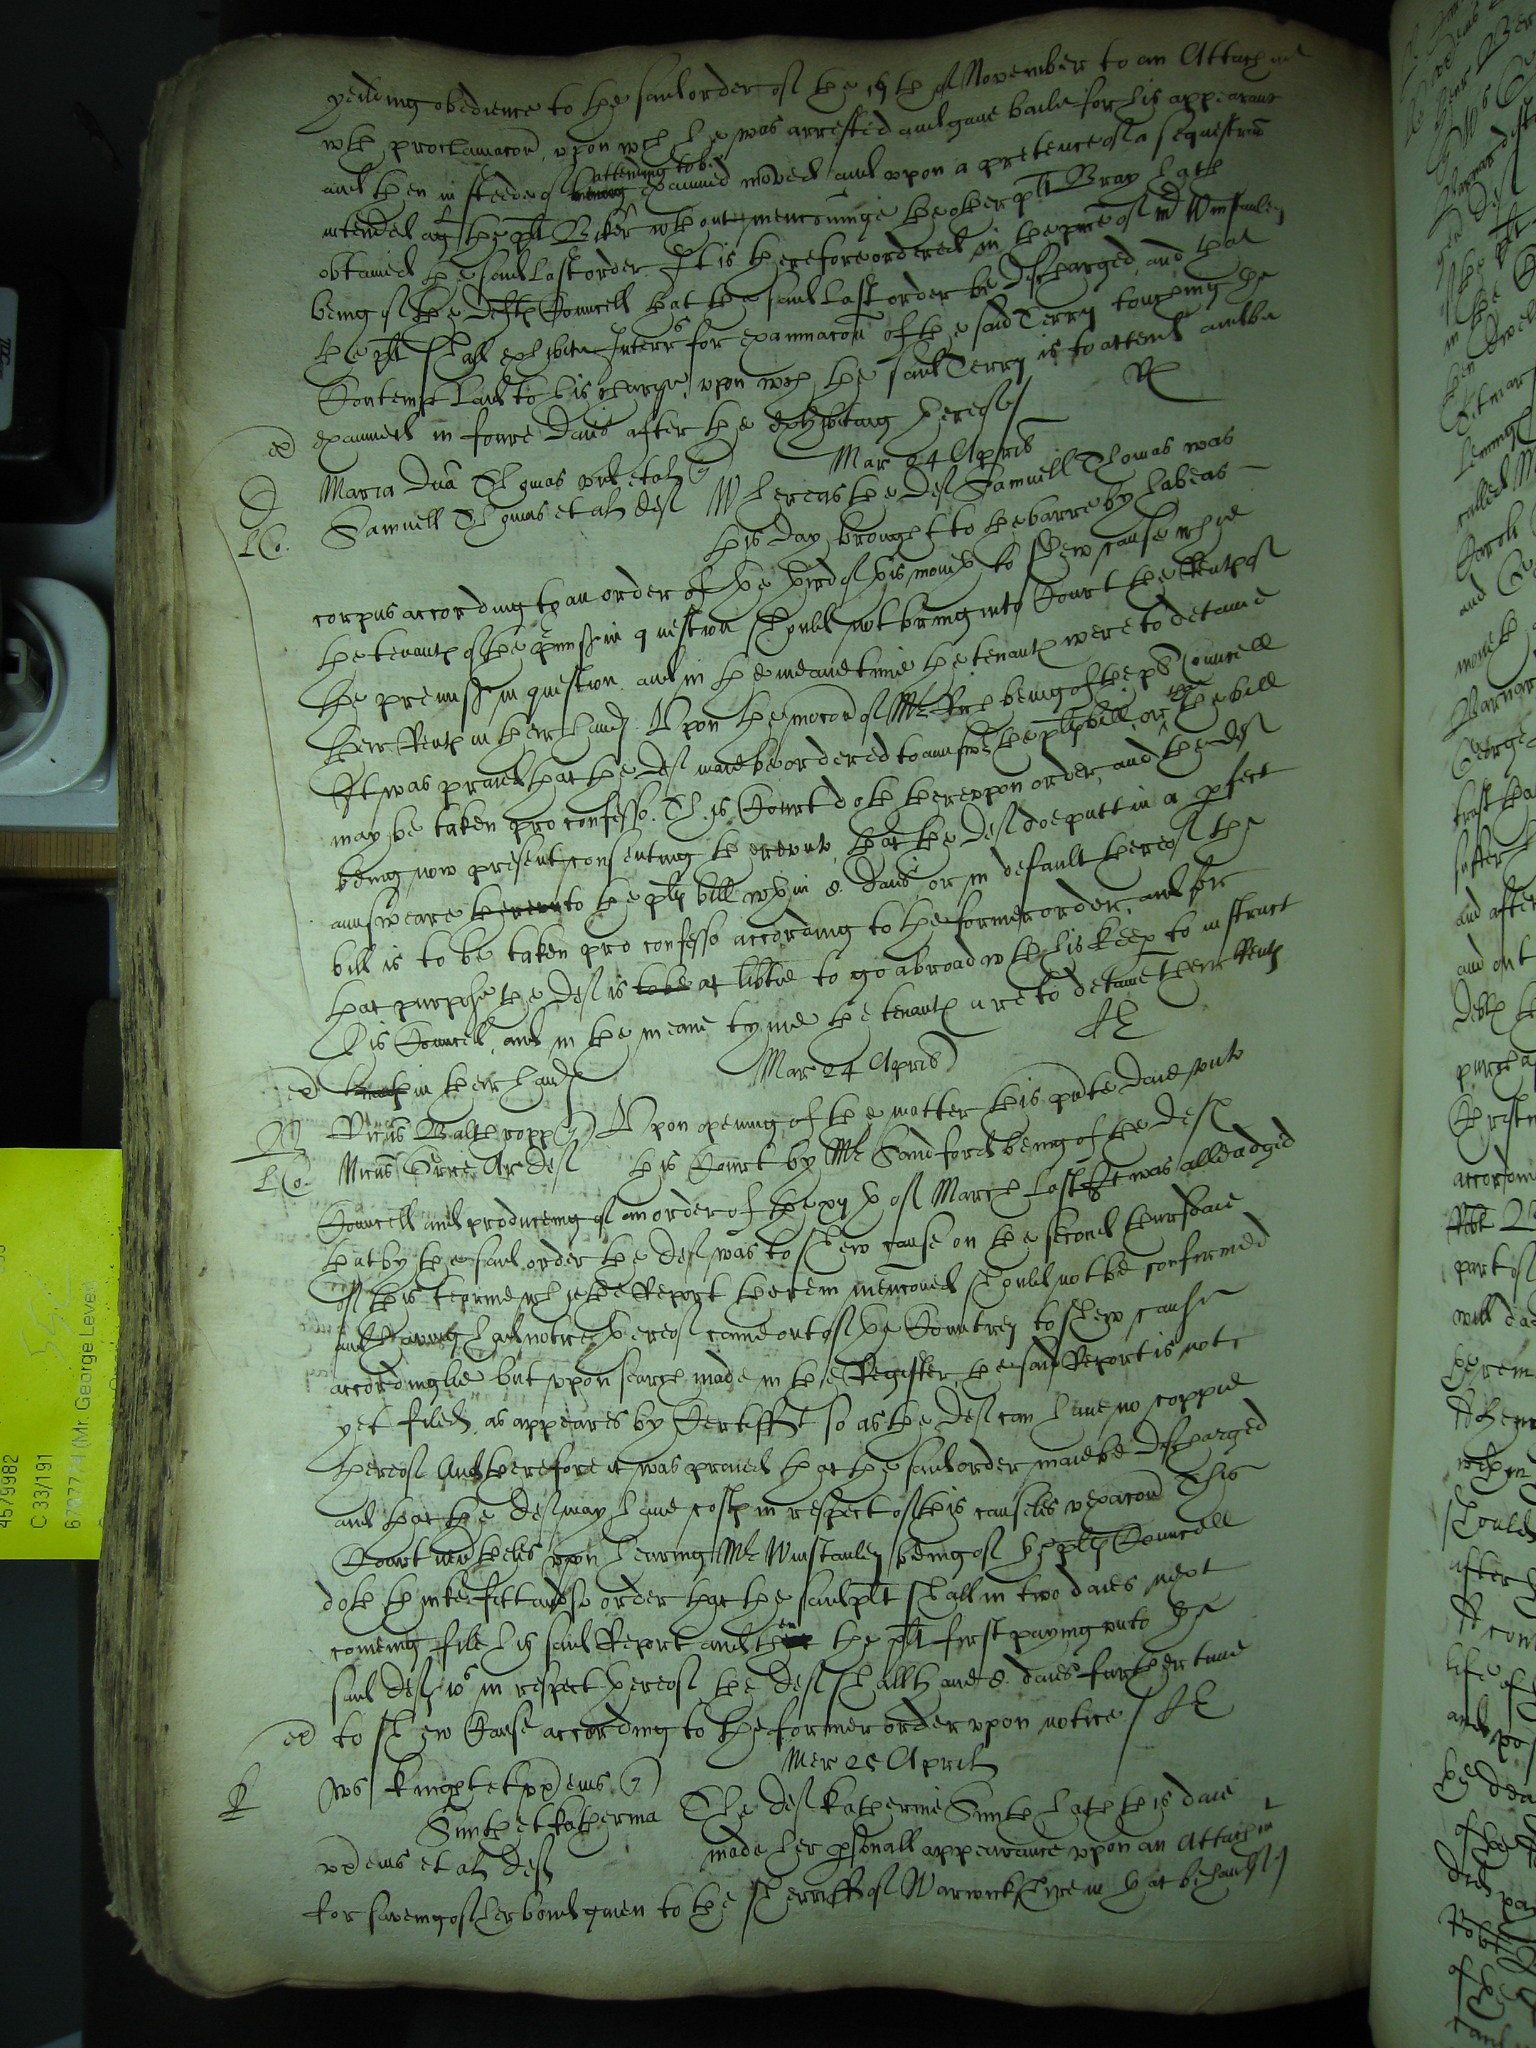 yeilding obedience to the said order of the 19th of November to an Attachmt
wth proclamacon, upon wch he was arrested and gave baile for his appearance
and then in steede of attending to be
being examined moved and upon a pretence of a sequestracon
intended agt the plt Baker wthout mencioninge the other plt Bray hath
obtained the said last order. It is therefore ordered in the pnce of Mr Winstanley
being of the Defts Councell that the said last order be discharged, and that
the plt shall exhibite Interrs for examinacon of the said Terry touching the
Contempt laid to his charge, upon wch the said Terry is to attend and be
ex examined in foure daies after the exhibiting hereof / Rl
Mar 24 Apris
Maria Dna Thomas
Samuell Thomas et als def Whereas the def Samuell Thomas was
LCo. this day brought to the barre by habeas
corpus according to an order of the third of this moneth to shew cause why
the tenants of the pmisses in question should not bring into Court the Rents of
the premisses in question and in the meane time the tenants were to detaine
their Rents in their hands. Upon the mocon of Mr Rich being of the pts Councell
It was praied that the def maie be ordered to answere the plts bill, or the bill
may be taken pro confesso. This Court doth thereupon order, and the def
being now present consenting thereunto, that the def doe putt in a pfect
answeare thereunto to the plts bill wthin 8. daies or in default thereof the
bill is to be taken pro confesso according to the former order, and for
that purpose the def is to be at libtie to go abroad wth his keeper to instruct
his Councell, and in the meane tyme the tenants are to detaine their Rents
ex in their hands JE
Mar 24 Apris
Ricus Upon opening of the matter this pnte daie unto
LCo. Ar def this Court by Mr Sandford being of the defts
Councell and produceing of an order of the xijth of March last It was alleadged
that by the said order the def was to shew cause on the second thursdaie
of this tearme why the Report therein mencioned should not be confirmed
and having had notice thereof came out of the Countrey to shew cause
accordinglie but upon search made in the Register the said Report is not
yet filed as appeares by Certifft so as the def can have no coppie
thereof And therefore it was praied that the said order maie be discharged
and that the def may have costs in respect of this causeles vexacon This
Court nevertheles upon hearing Mr Winstanley being of the plts Councell
doth thinke fitt and so order that the said plt shall in two daies next
comeing file his said Report and then the plt first paying unto the
said deft 10s in respect thereof the def shall have 8. daies further time
ex to shew Cause according to the former order upon notice / JE
Mer 25 Aprilis
Smith et Katherina The def Katherine Smith hath this daie
uxor eius et als defts made her psonall appearance upon an Attachmt
for saveing of her bond given to the sherriff of Warwickshire in that behalf /